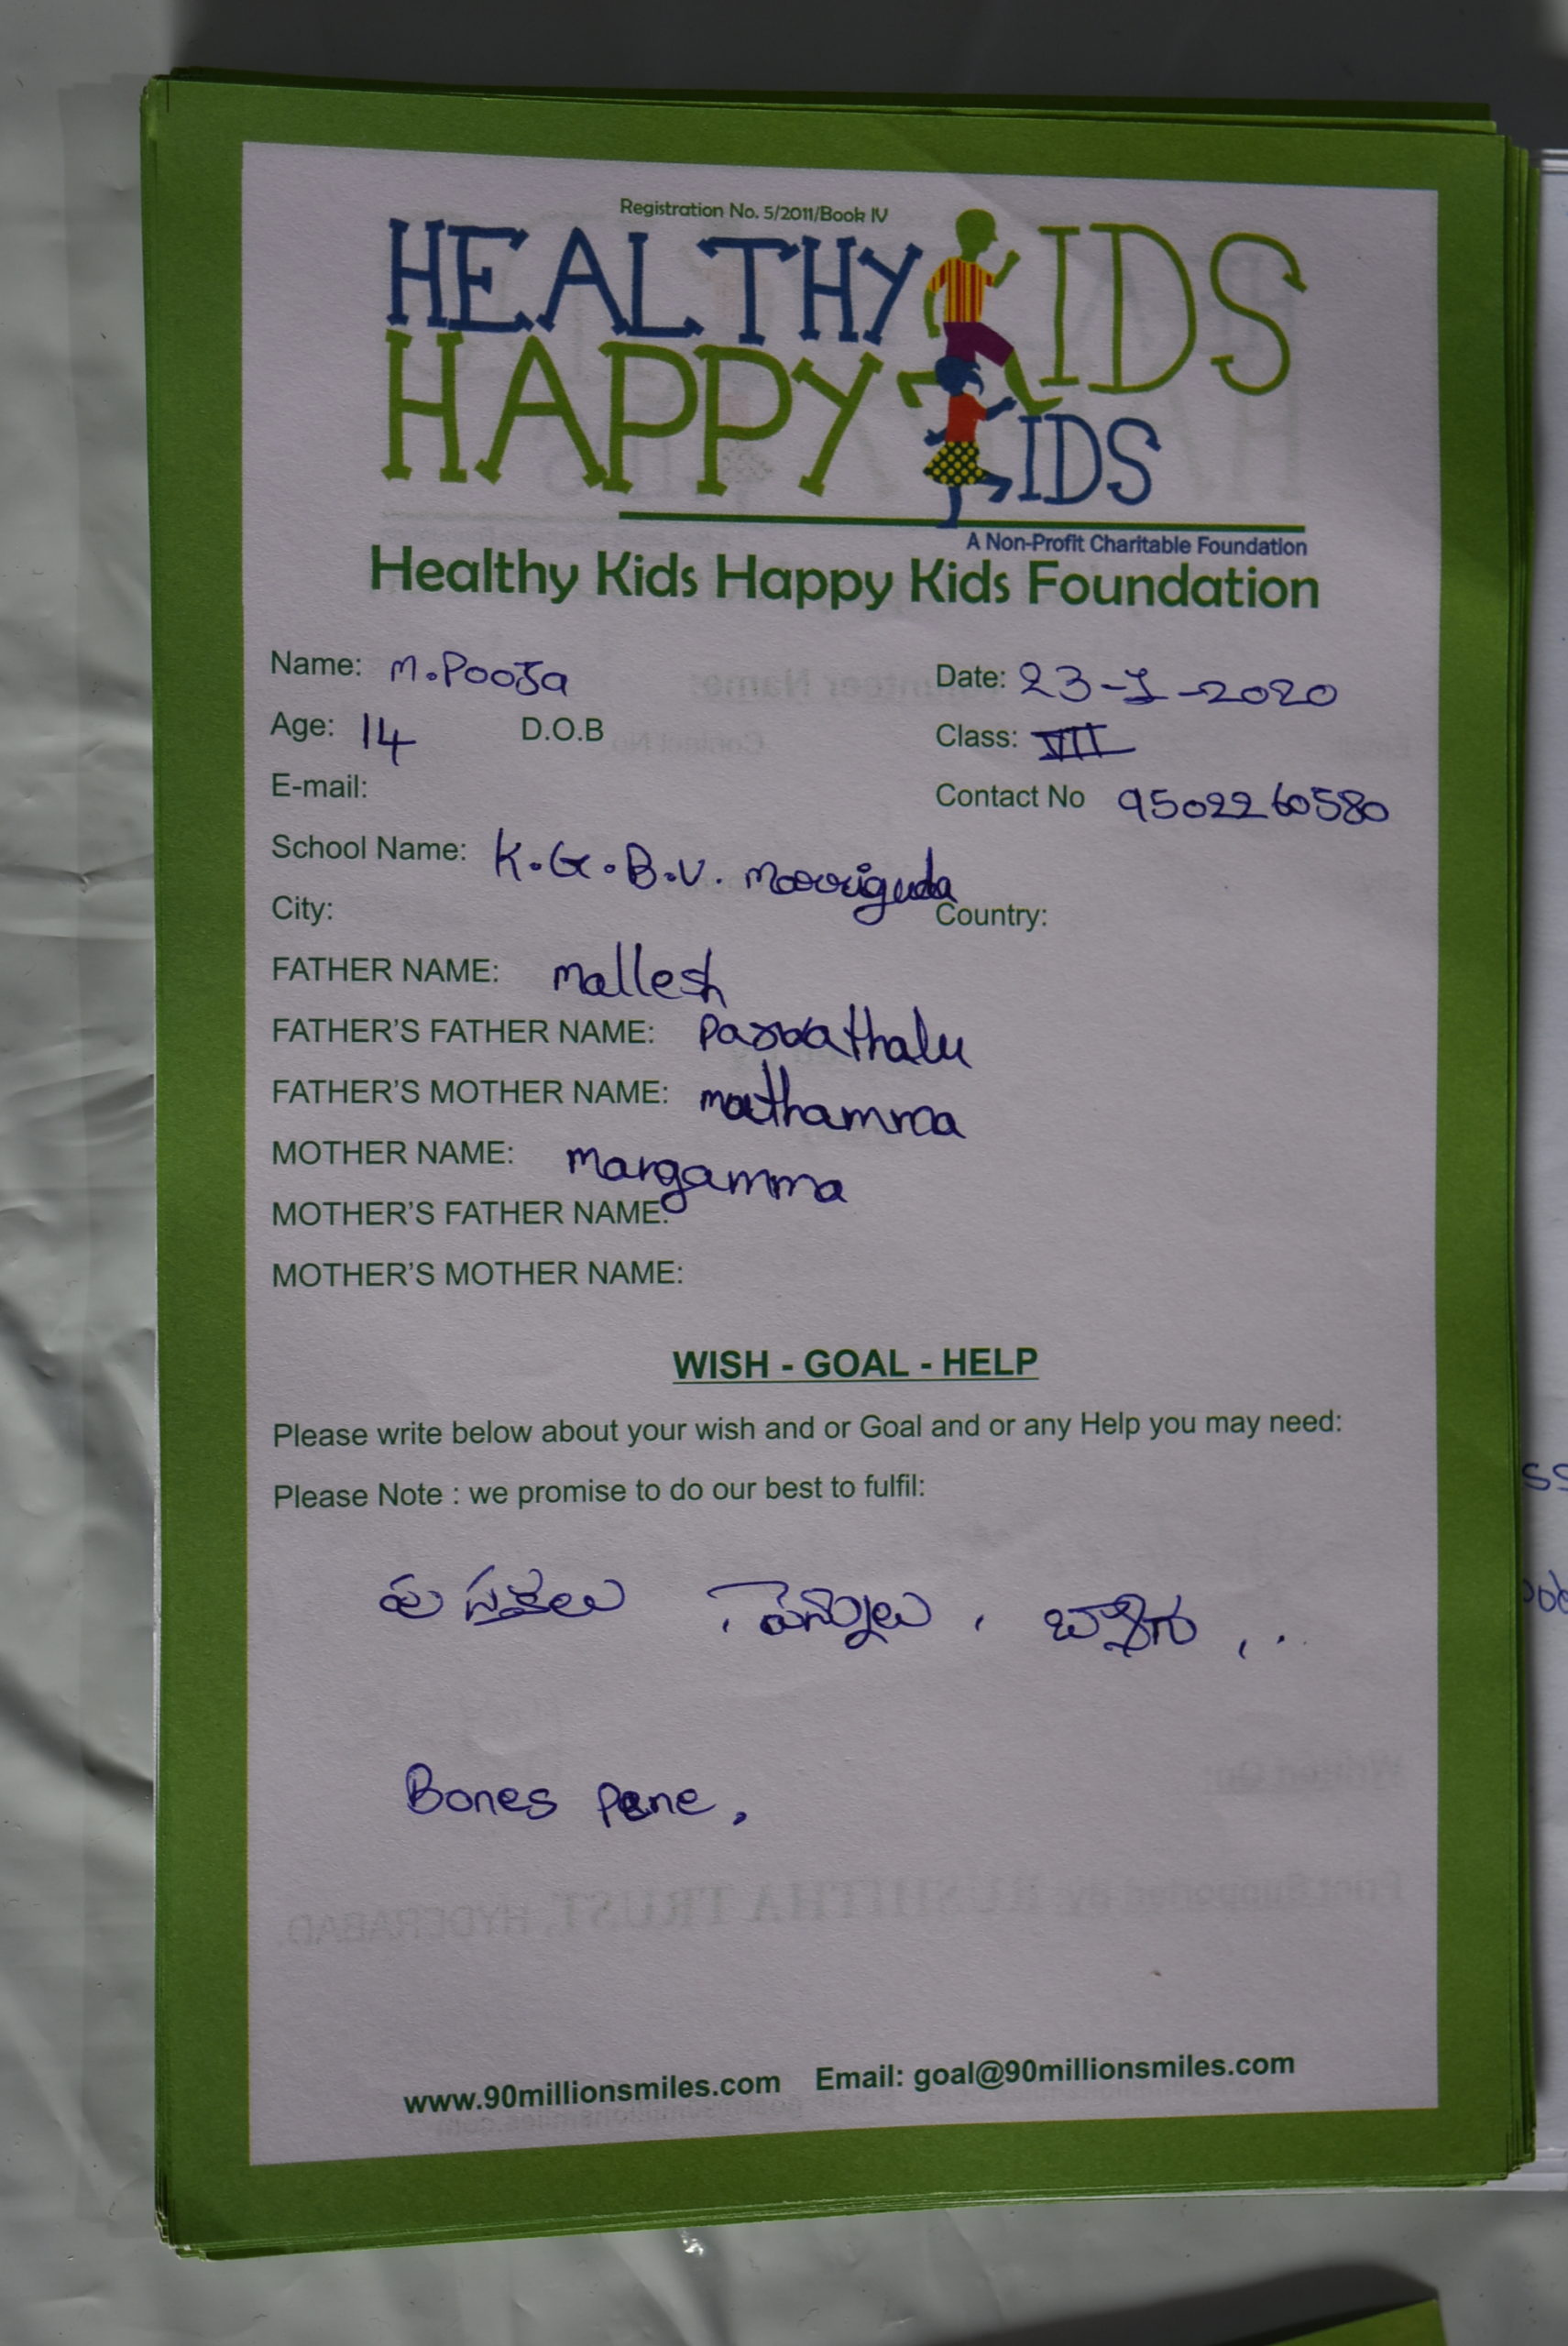 Registration No. 5/2011/Book IV
HEALTHY KIDS
HAPPY KIDS
A Non-Profit Charitable Foundation
Healthy Kids Happy Kids Foundation
Name: M.Pooja Date: 23-1-2020
Age: 14 D.O.B Class: VII
E-mail: Contact No 9502260580
School Name: K.G.B.V. Marriguda
City: Country:
FATHER NAME: Mallesh
FATHER'S FATHER NAME: Parvathalu
FATHER'S MOTHER NAME: mathamma
MOTHER NAME: margamma
MOTHER'S FATHER NAME:
MOTHER'S MOTHER NAME:
WISH - GOAL - HELP
Please write below about your wish and or Goal and or any Help you may need:
Please Note : we promise to do our best to fulfil:
పుస్తకలు , పెన్నులు , బ్యాగు , .
Bones pene,
www.90millionsmiles.com Email: goal@90millionsmiles.com